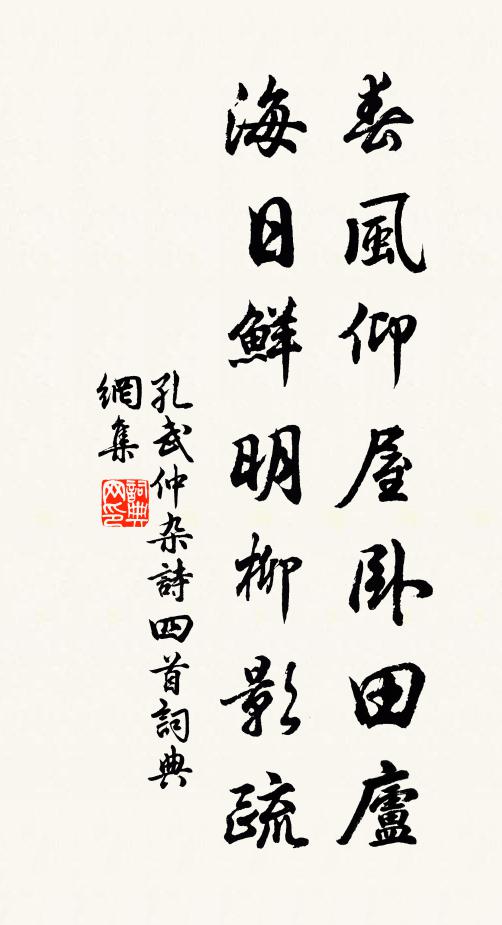 春風仰屋臥田廬
海日鮮明柳影疏
孔武仲杂詩四首詞典
網集
詞典
网印